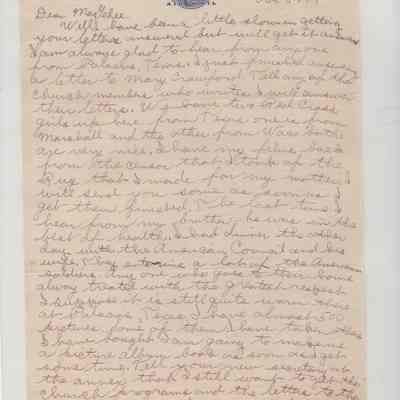 Dear
Well, have been a little slow in getting
your letter answered but will get it answered
I am always glad to hear from anyone
from Palacios, Texas. I just finished answering
a letter to Mary Crawford. Tell any of the
church members who writes I will answer
their letters. We have two Red Cross
girls up here from Texas one is from
Marshall and the other from Waco both
are very nice. I have my films back
from the censor that I took of the
Rug that I made for my mother, I
will send you some as soon as I
get them finished. The last time I
hear from my brother he was in the
best of health. I had dinner the other
day with the American Council and his
wife. They a lot of the American
soldiers. Any one who goes to their home
alway treated with the greatest respect
I suppose it is still quite warm there
at Palacios, Texas. I have almost 500
pictures some of them I have taken
I have bought. I am going to make me
a picture album book as soon as I get
some time. Tell your new secretary at
the annex that I still want to get the
church programs and the letters to the